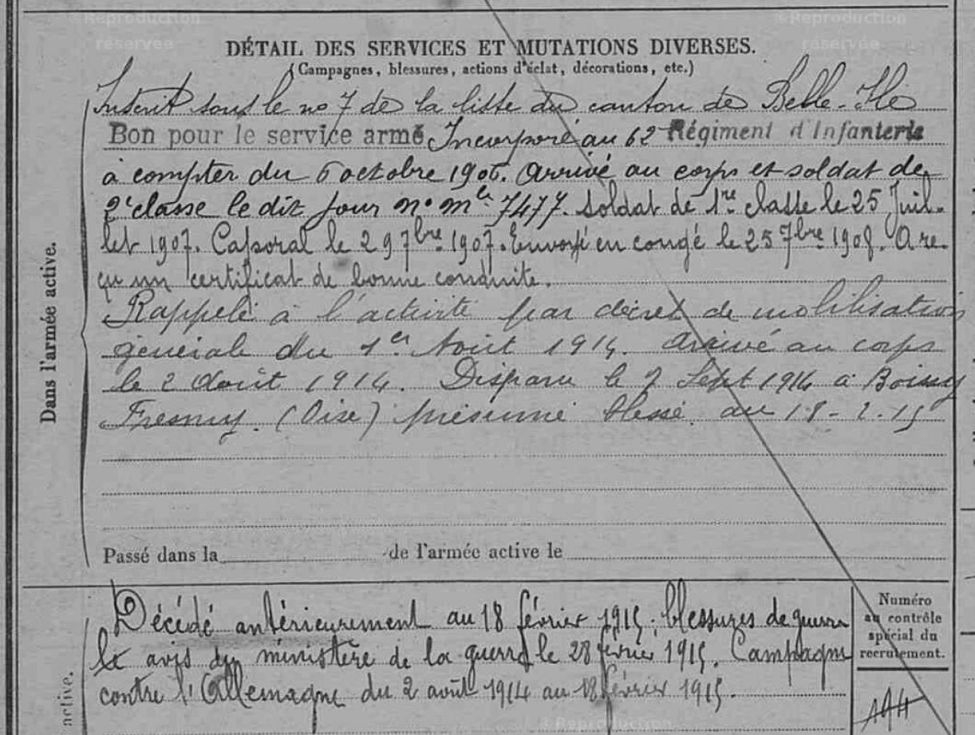 © Reproduction réservée
© Reproduction réservée
DÉTAIL DES SERVICES ET MUTATIONS DIVERSES.
(Campagnes, blessures, actions d'éclat, décorations, etc.)
Inscrit sous le no 7 de la liste du canton de Belle-Ile
Bon pour le service armé Incorporé au 62 Régiment d'Infanterie
à compter du 6 octobre 1906. Arrivé au corps et soldat de
2e classe le dit jour no mle 7477. Soldat de 1re classe le 25 Juil-
let 1907. Caporal le 29 7bre 1907. Envoyé en congé le 25 7bre 1908. A re-
çu un certificat de bonne conduite.
Rappelé à l'activité par décret de mobilisation
générale du 1er Août 1914. Arrivé au corps
le 2 Août 1914. Disparu le 7 Sept 1914 à Boissy
Fresnoy. (Oise) présumé blessé. au 18-2.15
Dans l'armée active.
Passé dans la de l'armée active le
Décédé antérieurement au 18 février 1915: blessures de guerre
avis du ministère de la guerre le 28 février 1915. Campagne
contre l'Allemagne du 2 août 1914 au 18 février 1915.
active.
Numéro
au contrôle
spécial du
recrutement.
© Reproduction